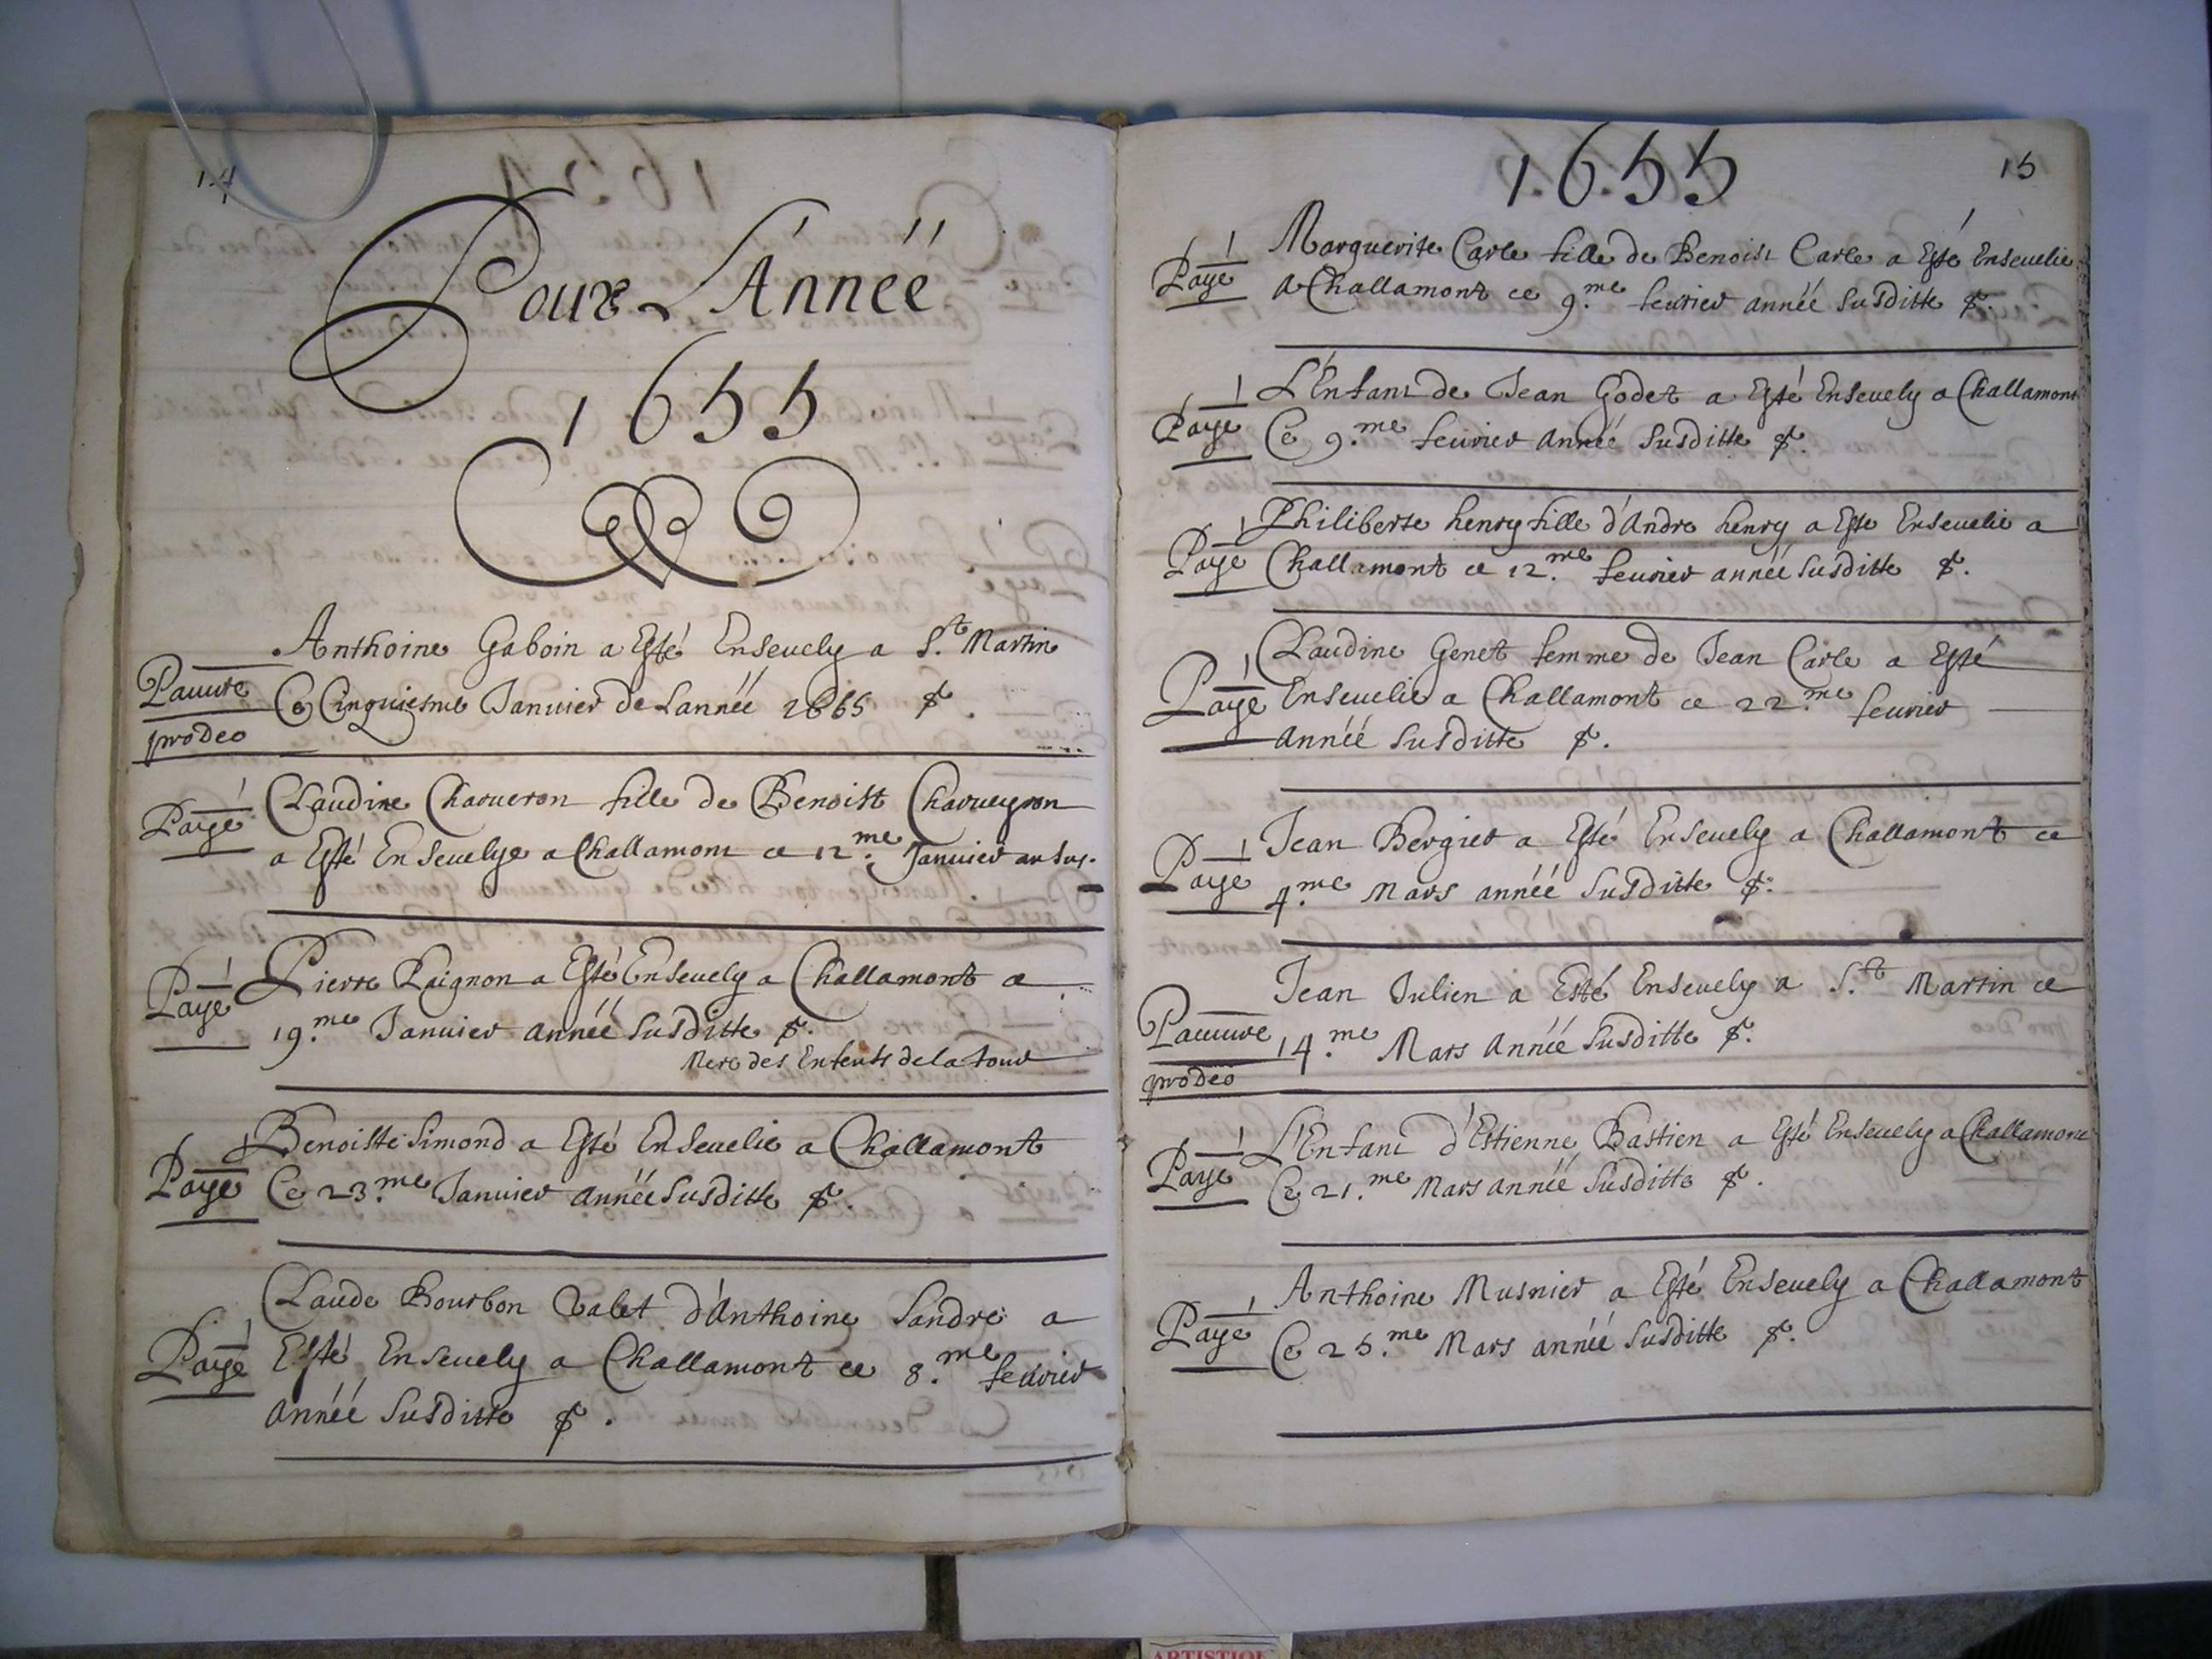 14
Pour L'Année
1655
Anthoine Gaboin a Esté Enseuely a S.t Martin
Pauure
Ce Cinquiesme Januier de Lannéé 1665
pro deo
Claudine Charueron fille de Benoist Charueyron
Payé
a Esté Enseuelye a Challamont ce 12.me Januier an sus.
Pierre a Esté Enseuely a Challamont ce
Payé
19.me Januier annéé susditte
Mere des Enfents de la tour
Benoiste Simond a Esté Enseuelie a Challamont
Payé
Ce 23.me Januier annéé susditte
Claude Bourbon Valet d'Anthoine Sandre a
Payé
Esté Enseuely a Challamont ce 8.me feurier
annéé susditte
1.6.55
15
Marguerite Carle fille de Benoist Carle a Esté Enseuelie
Payé
a Challamont ce 9.me feurier annéé susditte
L'Enfant de Jean Godet a Esté Enseuely a Challamont
Payé
Ce 9.me feurier annéé susditte
Philiberte henry fille d'Andre henry a Este Enseuelie a
Paye
Challamont ce 12.me feurier annéé susditte
Claudine Genet femme de Jean Carle a Esté
Payé
Enseuelie a Challamont ce 22.me feurier
annéé susditte
Jean Bergier a Esté Enseuely a Challamont ce
Paye
4.me Mars annéé susditte
Jean Julien a Esté Enseuely a S.t Martin ce
Pauuure
14.me Mars annéé susditte
pro deo
L'Enfant d'Estienne Bastien a Esté Enseuely a Challamont
Payé
Ce 21.me Mars annéé susditte
Anthoine Musnier a Esté Enseuely a Challamont
Payé
Ce 25.me Mars annéé susditte